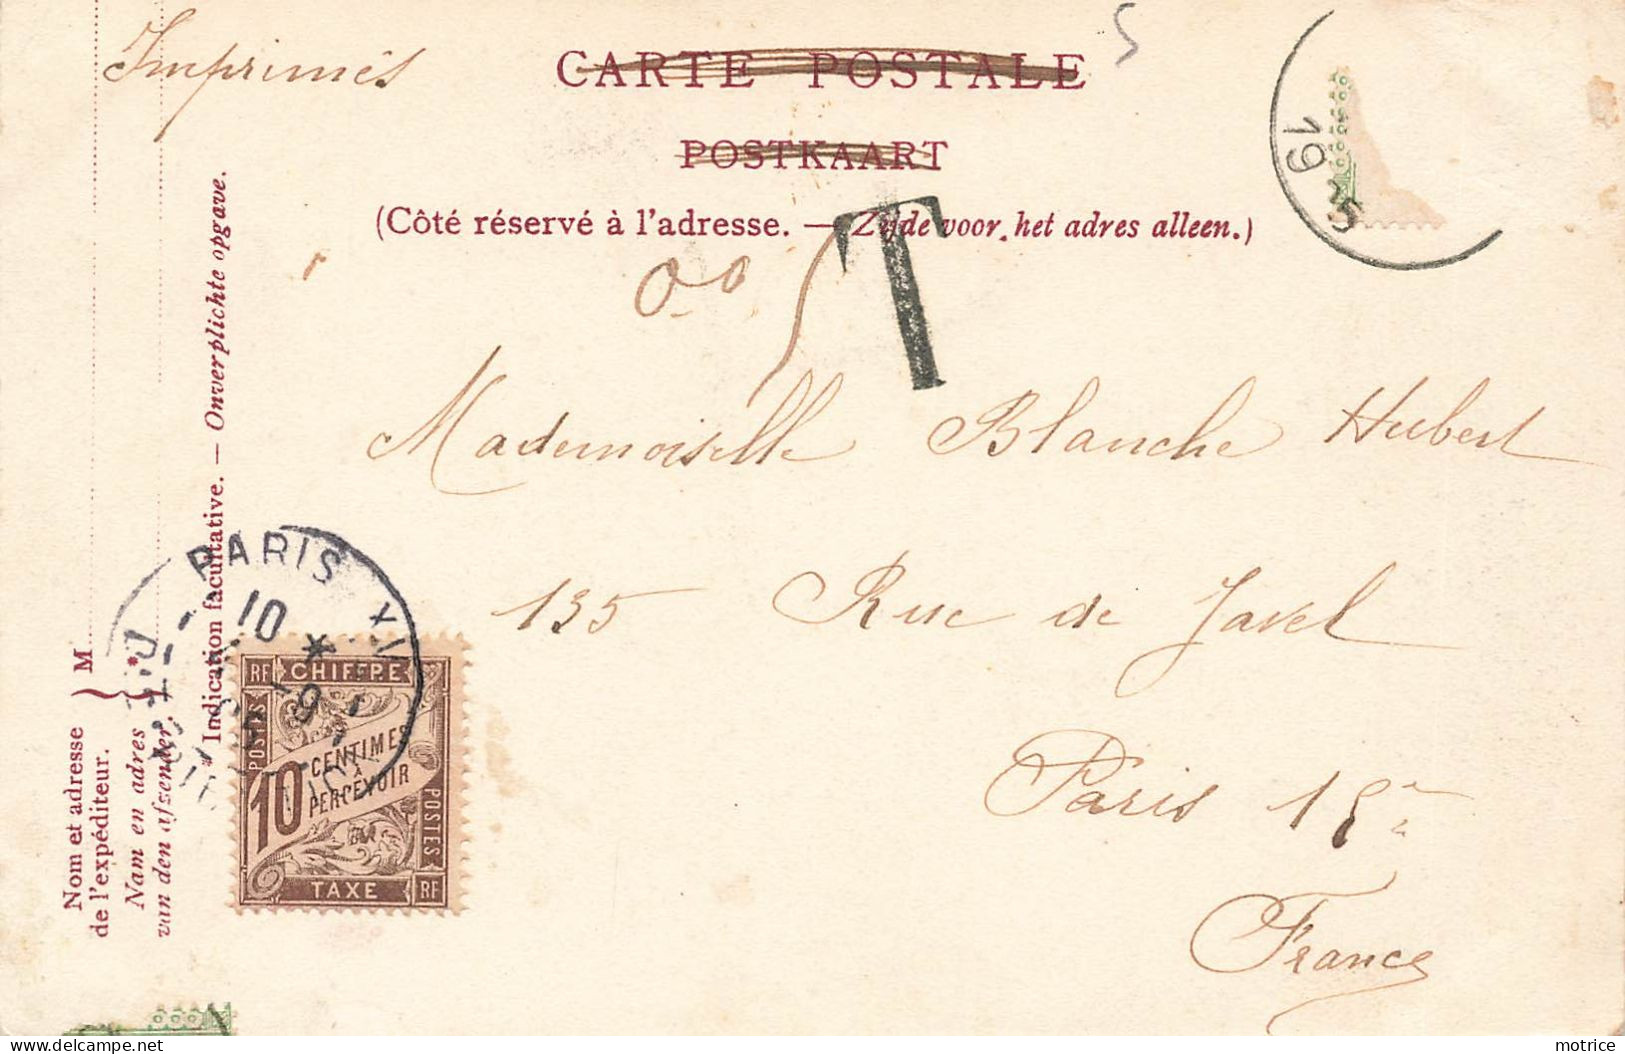 Imprimés
CARTE POSTALE
POSTKAART
(Côté réservé à l'adresse. — Zijde voor het adres alleen.)
T
19
5
Mademoiselle Blanche Hubert
135 Rue de Javel
Paris 15
France
Nom et adresse de l'expéditeur. } M
Nam en adres van den afzender
* Indication facultative. — Onverplichte opgave.
PARIS XI
10 *
-9
RF CHIFFRE
POSTES
10 CENTIMES
A
PERCEVOIR
POSTES
TAXE RF
delcampe.net
motrice